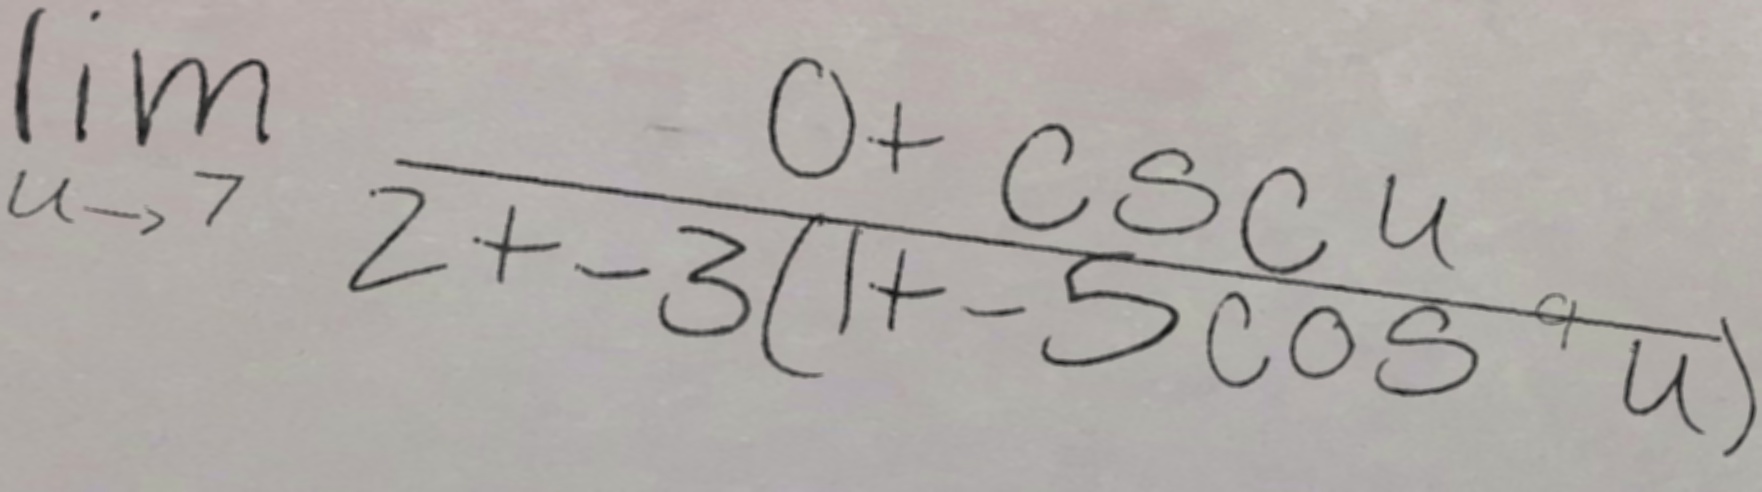 \lim_{u \to 7} \frac{0 + \csc u}{2 + -3(1 + -5\cos^9 u)}